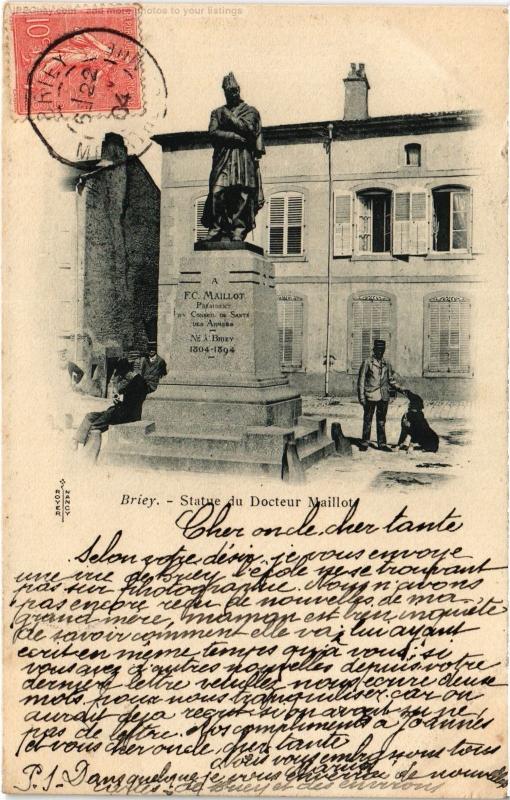 10
BRIEY
22
04
A
F.C. MAILLOT
PRÉSIDENT
DU CONSEIL DE SANTÉ
DES ARMÉES
NÉ À BRIEY
1804-1894
ROYER NANCY
Briey. - Statue du Docteur Maillot
Cher oncle, cher tante
Selon votre désir, je vous envoye
une vue de Briey l'école ne se trouvant
pas sur photographie. Nous n'avons
pas encore reçu de nouvelles de ma
grand-mère, maman est bien inquiète
de savoir comment elle va, lui ayant
écrit en même temps qu'à vous; si
vous avez d'autres nouvelles depuis votre
dernière lettre veuillez nous écrire deux
mots pour nous tranquilliser car on
aurait déjà reçu si on avait su ne
pas de lettre. Nos compliments à Joannès
et vous cher oncle, cher tante
vous embrassons tous
P.S - Dans quelque je vous enverrai de nouvelles
cartes de Briey et des environs